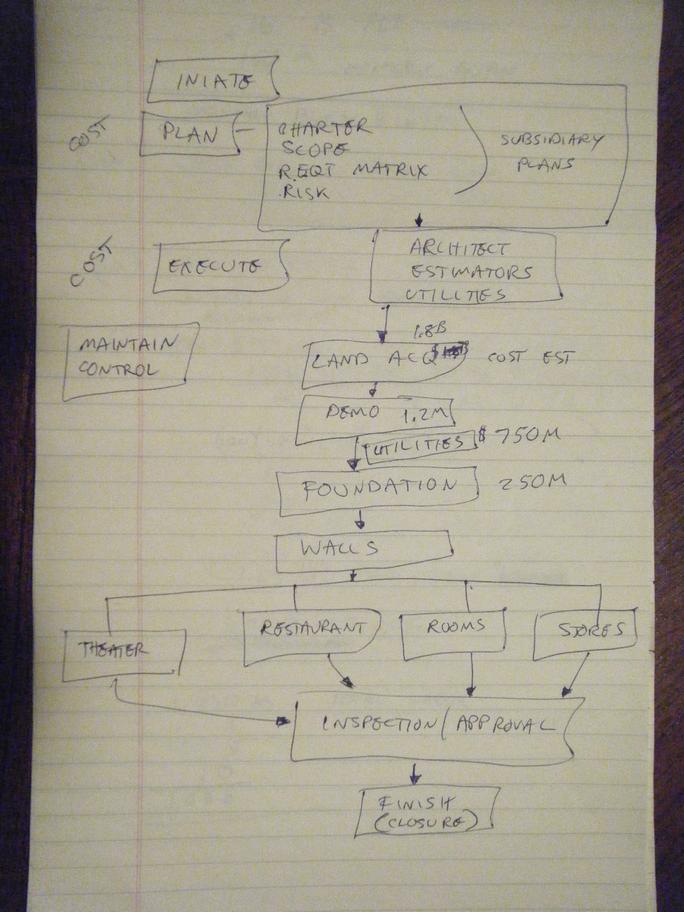 INIATE
COST
PLAN
CHARTER
SCOPE
REQT MATRIX
RISK
SUBSIDIARY
PLANS
COST
EXECUTE
ARCHITECT
ESTIMATORS
UTILITIES
MAINTAIN
CONTROL
1.8B
LAND ACQ COST EST
DEMO 1.2M
UTILITIES $ 750M
FOUNDATION 250M
WALLS
THEATER
RESTAURANT
ROOMS
STORES
INSPECTION/APPROVAL
FINISH
(CLOSURE)